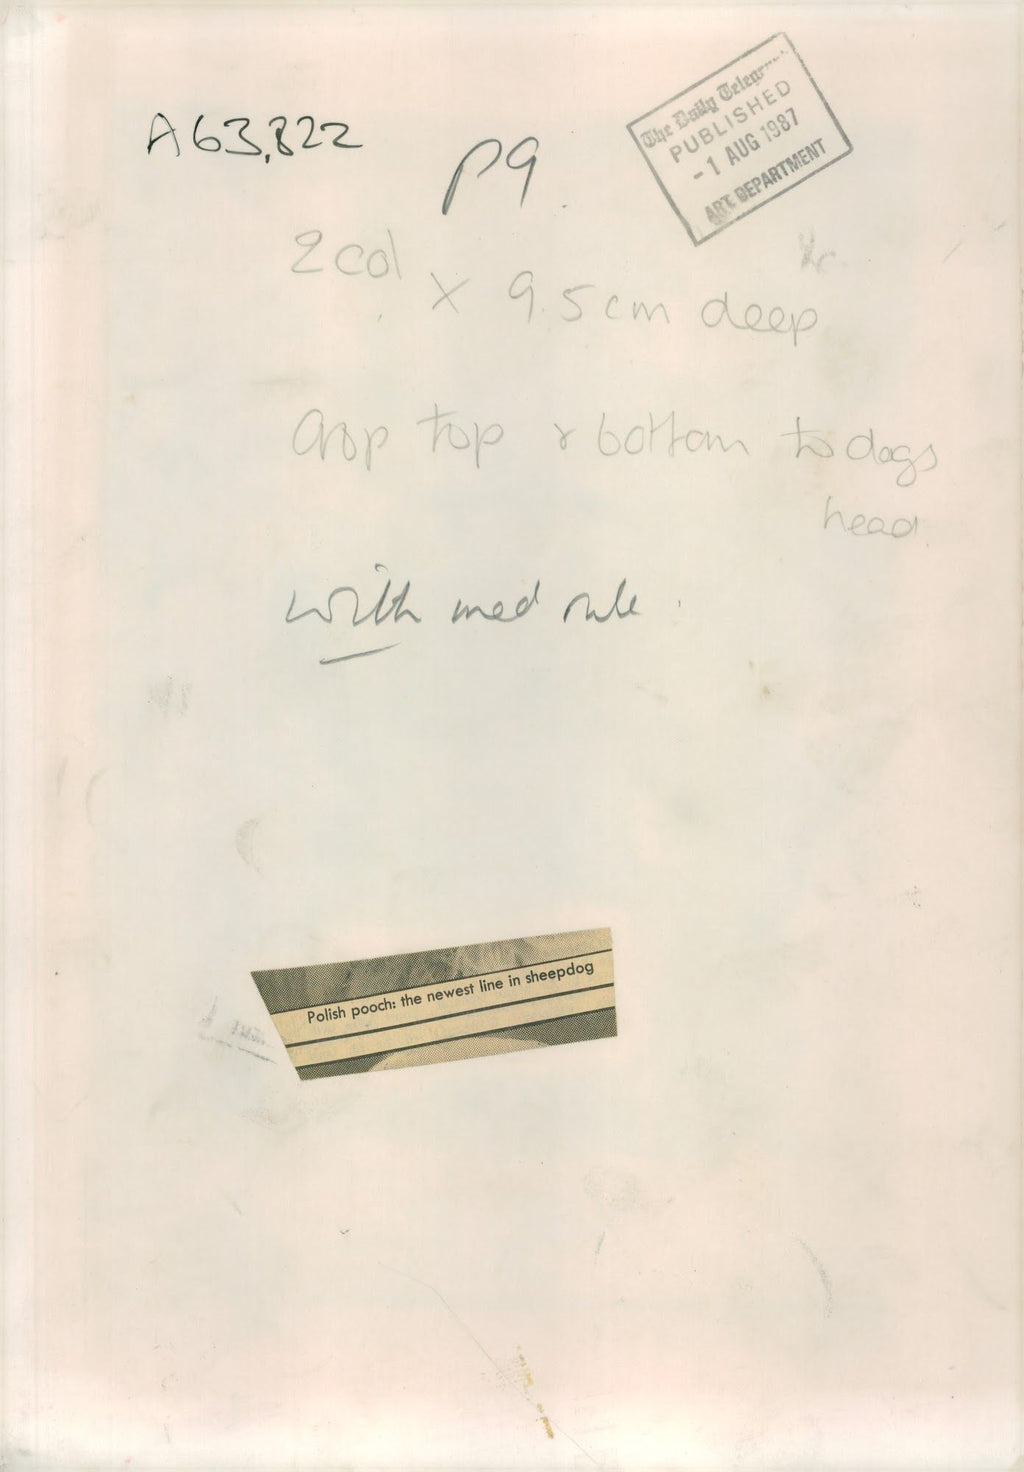 A63,822
The Daily Telegraph
PUBLISHED
-1 AUG 1987
ART DEPARTMENT
P9.
2 col x 9.5cm deep
Crop top & bottom to dogs
head.
with med rule.
Polish pooch: the newest line in sheepdog